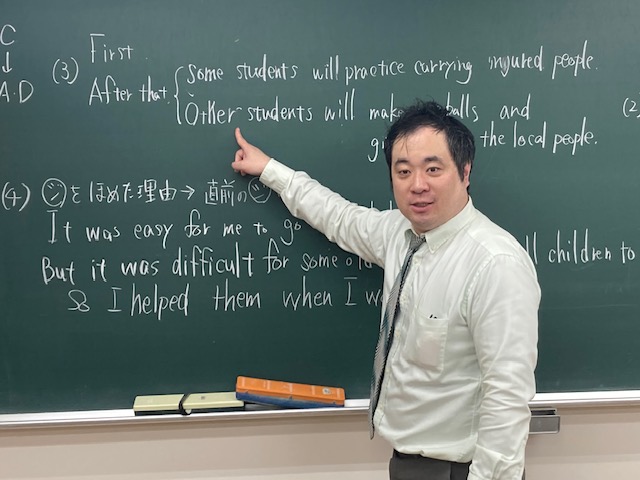 C
↓
A.D
(3) First
After that,
Some students will practice carrying injured people.
Other students will make balls and
the local people.
(2)
(4) をほめた理由→直前の
It was easy for me to go
But it was difficult for some children to
So I helped them when I